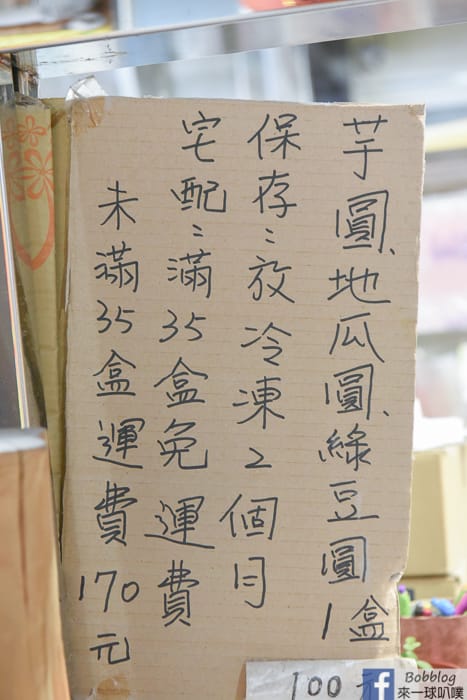 芋圓、地瓜圓、綠豆圓1盒
保存:放冷凍2個月
宅配:滿35盒免運費
未滿35盒運費170元
100
Bobblog
來一球叭噗